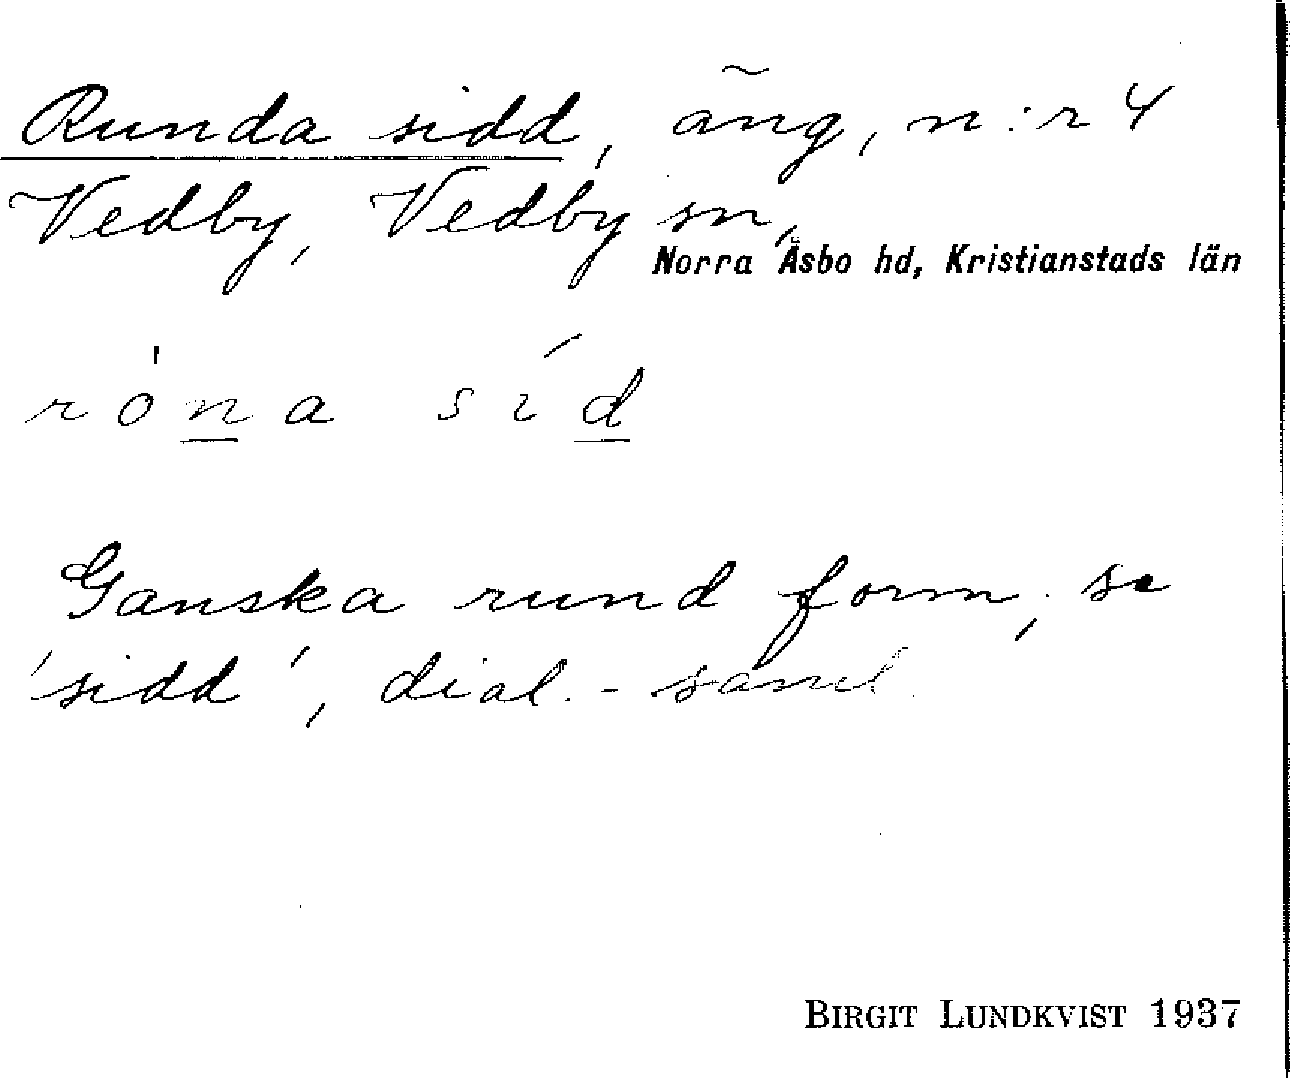 Runda sidd, äng, n:r 4
Vedby, Vedby sn,
Norra Åsbo hd, Kristianstads län
róna síd
Ganska rund form, se
'sidd', dial.-saml.
BIRGIT LUNDKVIST 1937